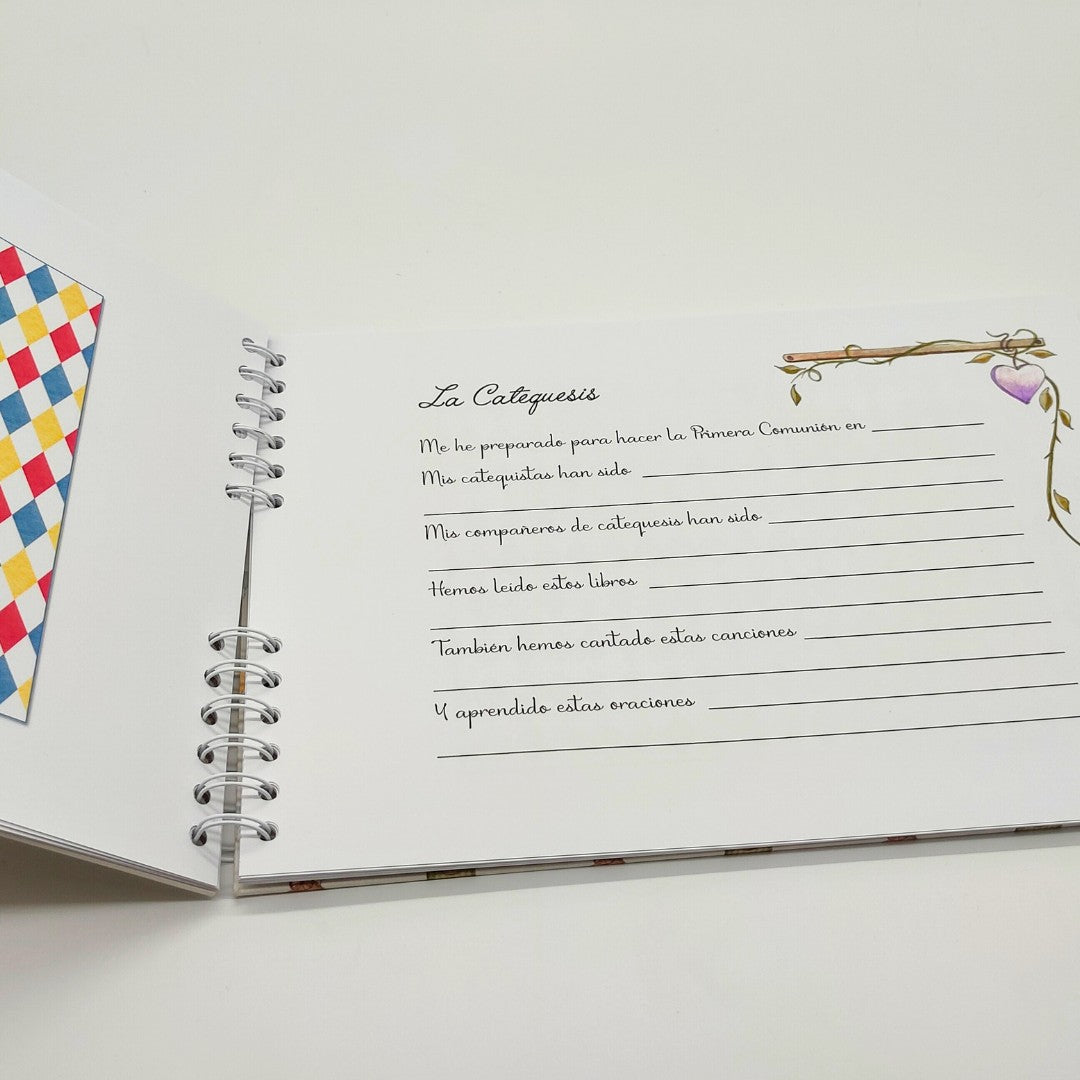 La Catequesis
Me he preparado para hacer la Primera Comunión en
Mis catequistas han sido
Mis compañeros de catequesis han sido
Hemos leido estos libros
También hemos cantado estas canciones
Y aprendido estas oraciones